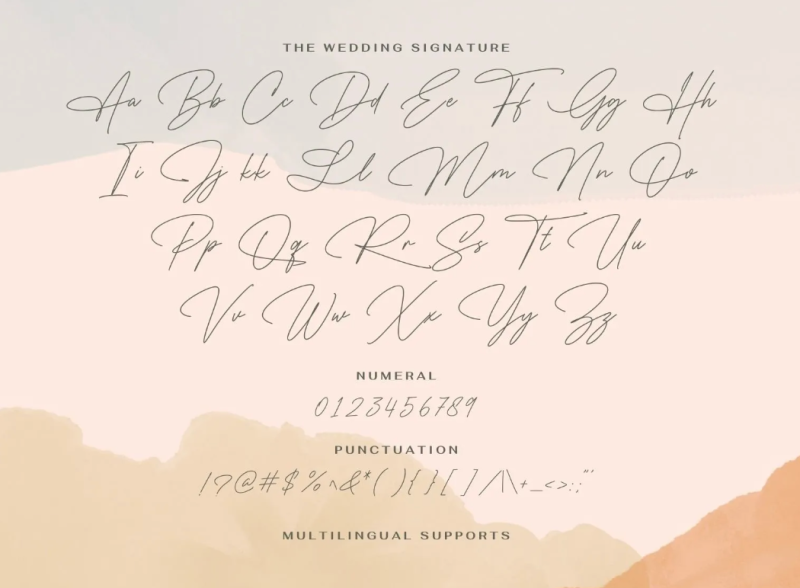 THE WEDDING SIGNATURE
Aa Bb Cc Dd Ee Ff Gg Hh
Ii Jj kk Ll Mm Nn Oo
Pp Qq Rr Ss Tt Uu
Vv Ww Xx Yy Zz
NUMERAL
0123456789
PUNCTUATION
!?@#$%^&*(){}[]/|\+_<>:;"'
MULTILINGUAL SUPPORTS